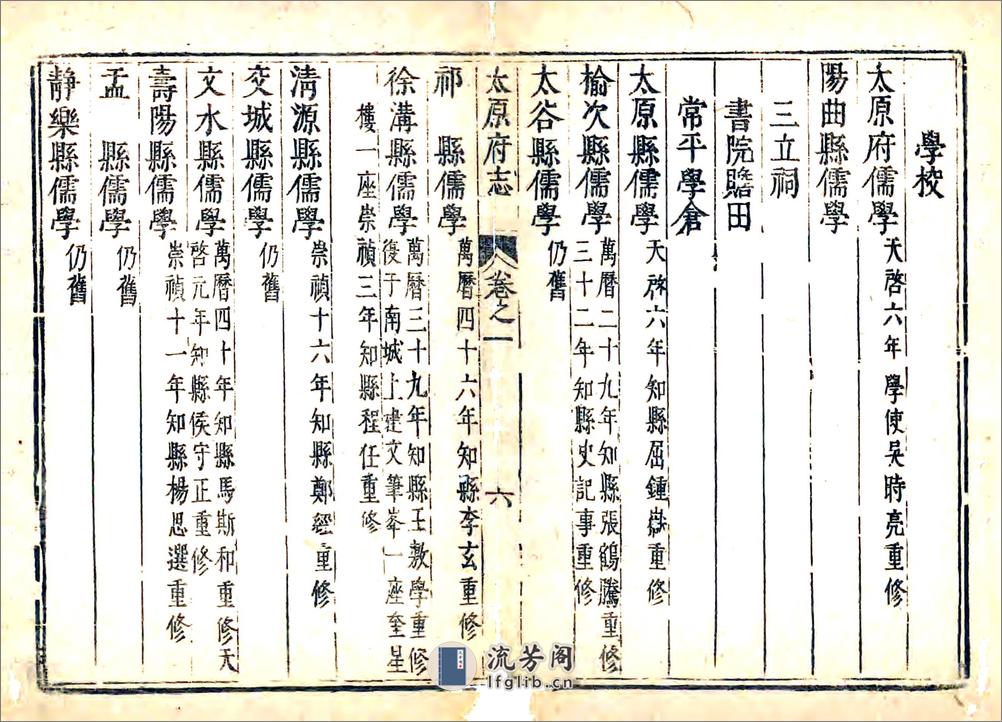 學校
太原府儒學天啓六年學使吳時亮重修
陽曲縣儒學
三立祠
書院贍田
常平學倉
太原縣儒學天啓六年知縣屈鍾嶽重修
榆次縣儒學萬曆二十九年知縣張鶴騰重修
三十二年知縣史記事重修
太谷縣儒學仍舊
太原府志 卷之一 六
祁 縣儒學萬曆四十六年知縣李玄重修
徐溝縣儒學萬曆三十九年知縣王教學重修
復于南城上建文筆峯一座奎星
樓一座崇禎三年知縣程任重修
清源縣儒學崇禎十六年知縣鄭經重修
交城縣儒學仍舊
文水縣儒學萬曆四十年知縣馬斯和重修天
啓元年知縣侯守正重修
壽陽縣儒學崇禎十一年知縣楊思選重修
盂 縣儒學仍舊
靜樂縣儒學仍舊
流芳阁
lfglib.cn